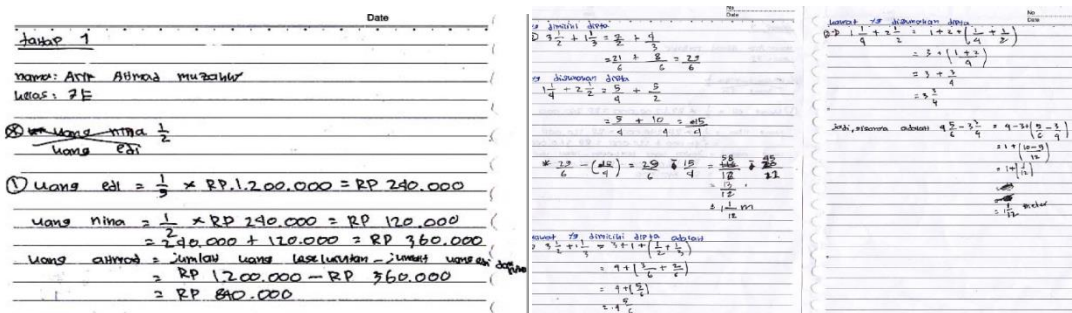 Date
tahap 1
nama: Arif Ahmad muzahir
kelas: 7E
uang nina 1/2
uang edi
① uang edi = 1/5 × RP.1.200.000 = RP 240.000
uang nina = 1/2 × RP 240.000 = RP 120.000
= 240.000 + 120.000 = RP 360.000
uang ahmad = jumlah uang keseluruhan - jumlah uang edi dan nina
= RP 1.200.000 - RP 360.000
= RP 840.000
No
Date
dimiliki dipta
3 1/2 + 1 1/3 = 7/2 + 4/3
= 21/6 + 8/6 = 29/6
digunakan dipta
1 1/4 + 2 1/2 = 5/4 + 5/2
= 5/4 + 10/4 = 15/4
* 29/6 - (15/4) = 29/6 - 15/4 = 58/12 - 45/12
= 13/12
= 1 1/12 m
kawat yg dimiliki dipta adalah
3 1/2 + 1 1/3 = 3 + 1 + (1/2 + 1/3)
= 4 + (3/6 + 2/6)
= 4 + (5/6)
= 4 5/6
No
Date
kawat yg digunakan dipta
1 1/4 + 2 1/2 = 1 + 2 + (1/4 + 1/2)
= 3 + (1+2/4)
= 3 + 3/4
= 3 3/4
Jadi, sisanya adalah 4 5/6 - 3 3/4 = 4 - 3 + (5/6 - 3/4)
= 1 + (10-9/12)
= 1 + (1/12)
= 1 1/12 meter